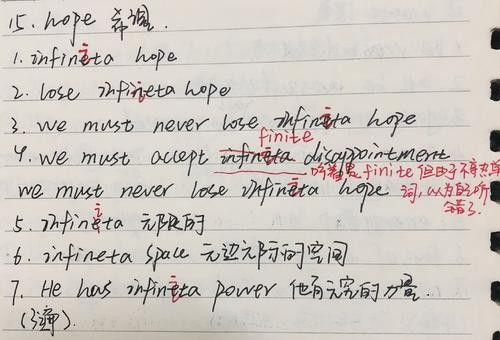 15. hope 希望
1. infineta hope
2. lose infineta hope
3. we must never lose infineta hope
finite
4. we must accept infineta disappointment
听着是 finite 但由于不
we must never lose infineta hope 词,以为自己听
错了.
5. infineta 无限的
6. infineta space 无边无际的空间
7. He has infineta power 他有无穷的力量.